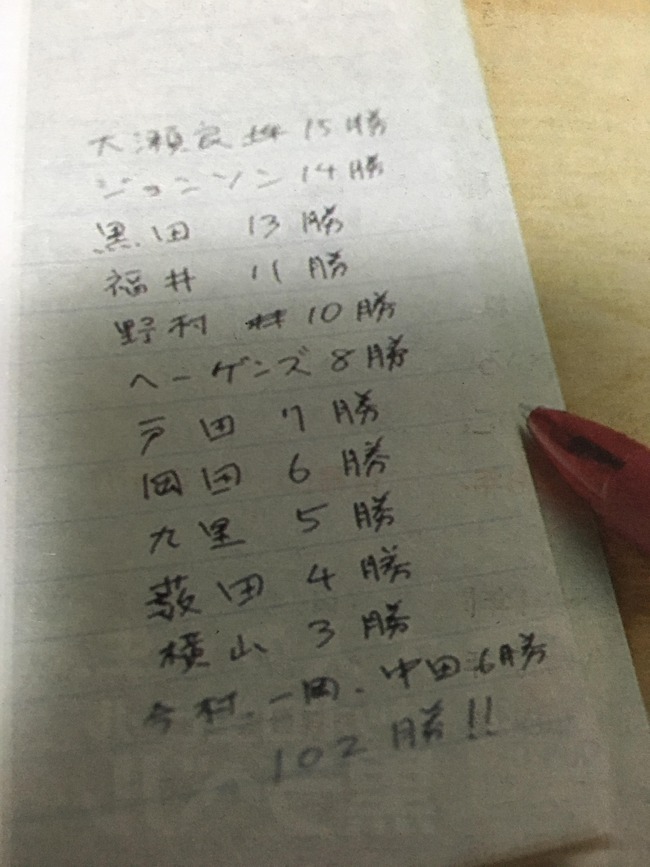 大瀬良 15勝
ジョンソン 14勝
黒田 13勝
福井 11勝
野村 10勝
ヘーゲンズ 8勝
戸田 7勝
岡田 6勝
九里 5勝
薮田 4勝
横山 3勝
今村、一岡、中田 6勝
102勝!!